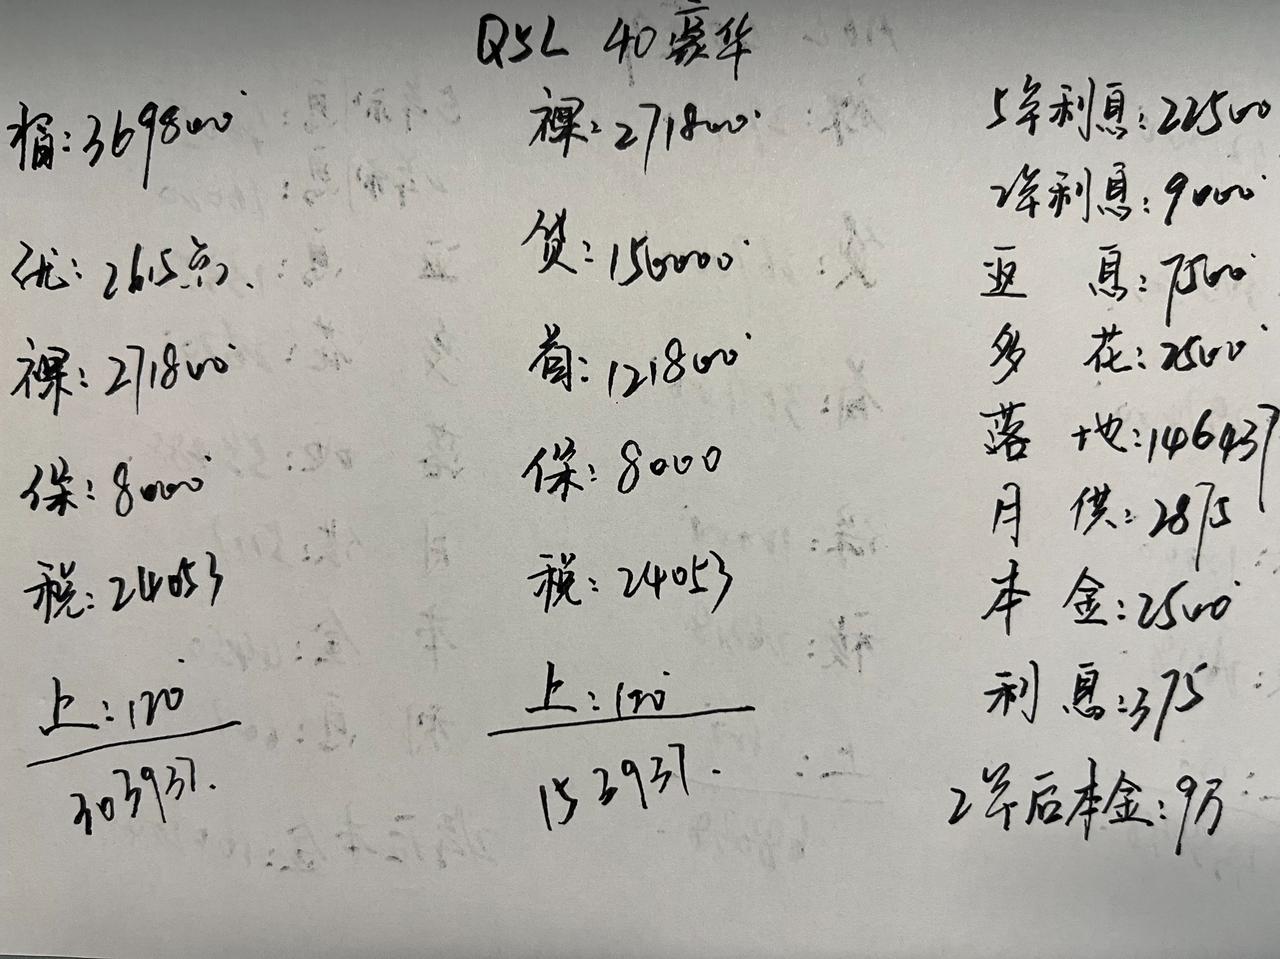 Q5L 40豪华
指:369800
优:26.5点.
裸:271800
保:8000
税:24053
上:120
303937.
裸:271800
贷:150000
首:121800
保:8000
税:24053
上:100
153937.
5年利息:22500
2年利息:9000
返 息:7500
多 花:2500
落 地:146437
月 供:2875
本 金:2500
利 息:375
2年后本金:9万